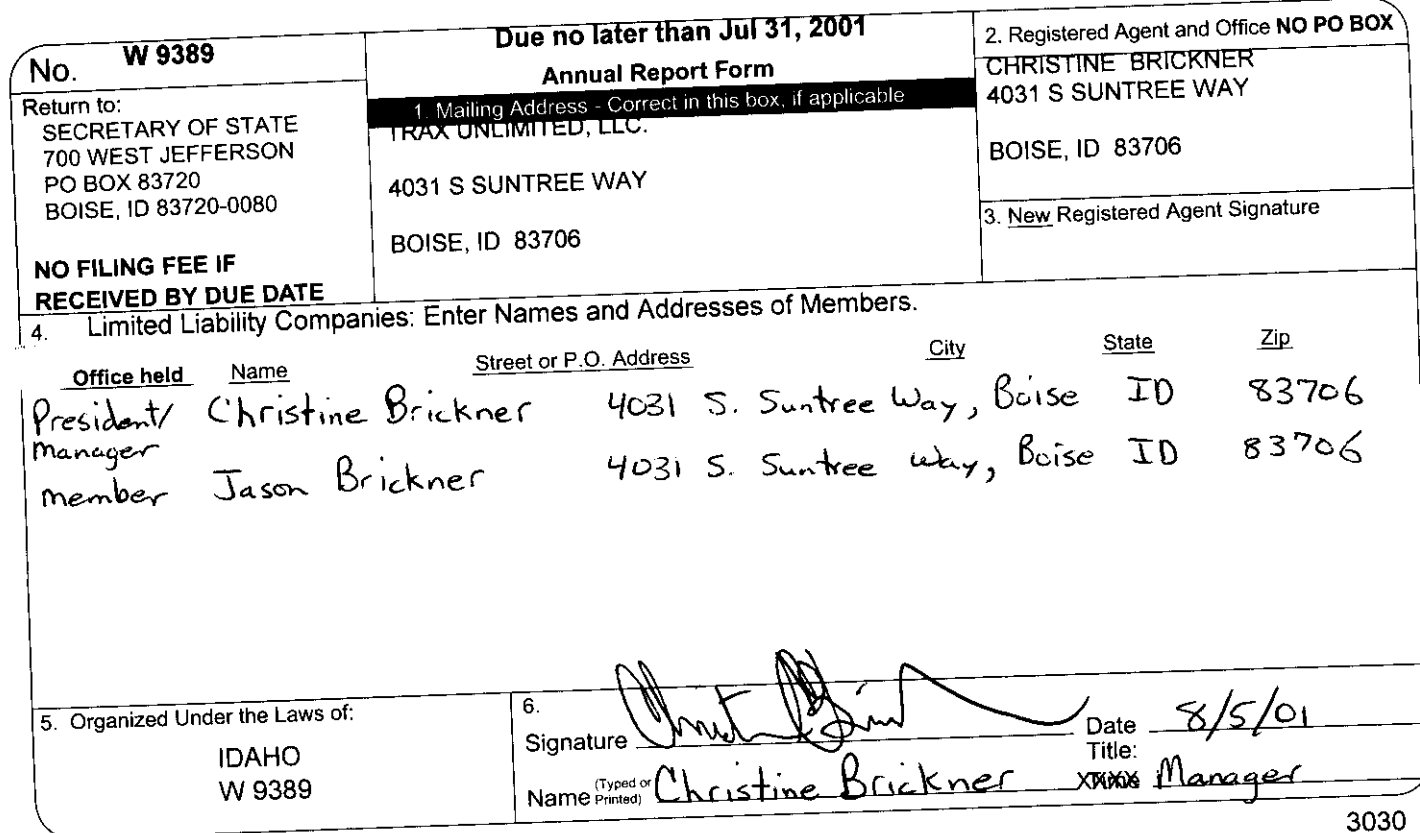 No. W 9389
Return to:
SECRETARY OF STATE
700 WEST JEFFERSON
PO BOX 83720
BOISE, ID 83720-0080
NO FILING FEE IF
RECEIVED BY DUE DATE
Due no later than Jul 31, 2001
Annual Report Form
1. Mailing Address - Correct in this box, if applicable
TRAX UNLIMITED, LLC.
4031 S SUNTREE WAY
BOISE, ID 83706
2. Registered Agent and Office NO PO BOX
CHRISTINE BRICKNER
4031 S SUNTREE WAY
BOISE, ID 83706
3. New Registered Agent Signature
4. Limited Liability Companies: Enter Names and Addresses of Members.
Office held Name Street or P.O. Address City State Zip
President/ Christine Brickner 4031 S. Suntree Way, Boise ID 83706
Manager
member Jason Brickner 4031 S. Suntree Way, Boise ID 83706
5. Organized Under the Laws of:
IDAHO
W 9389
6.
Signature Date 8/5/01
Title:
Name (Typed or Printed) Christine Brickner Manager
3030